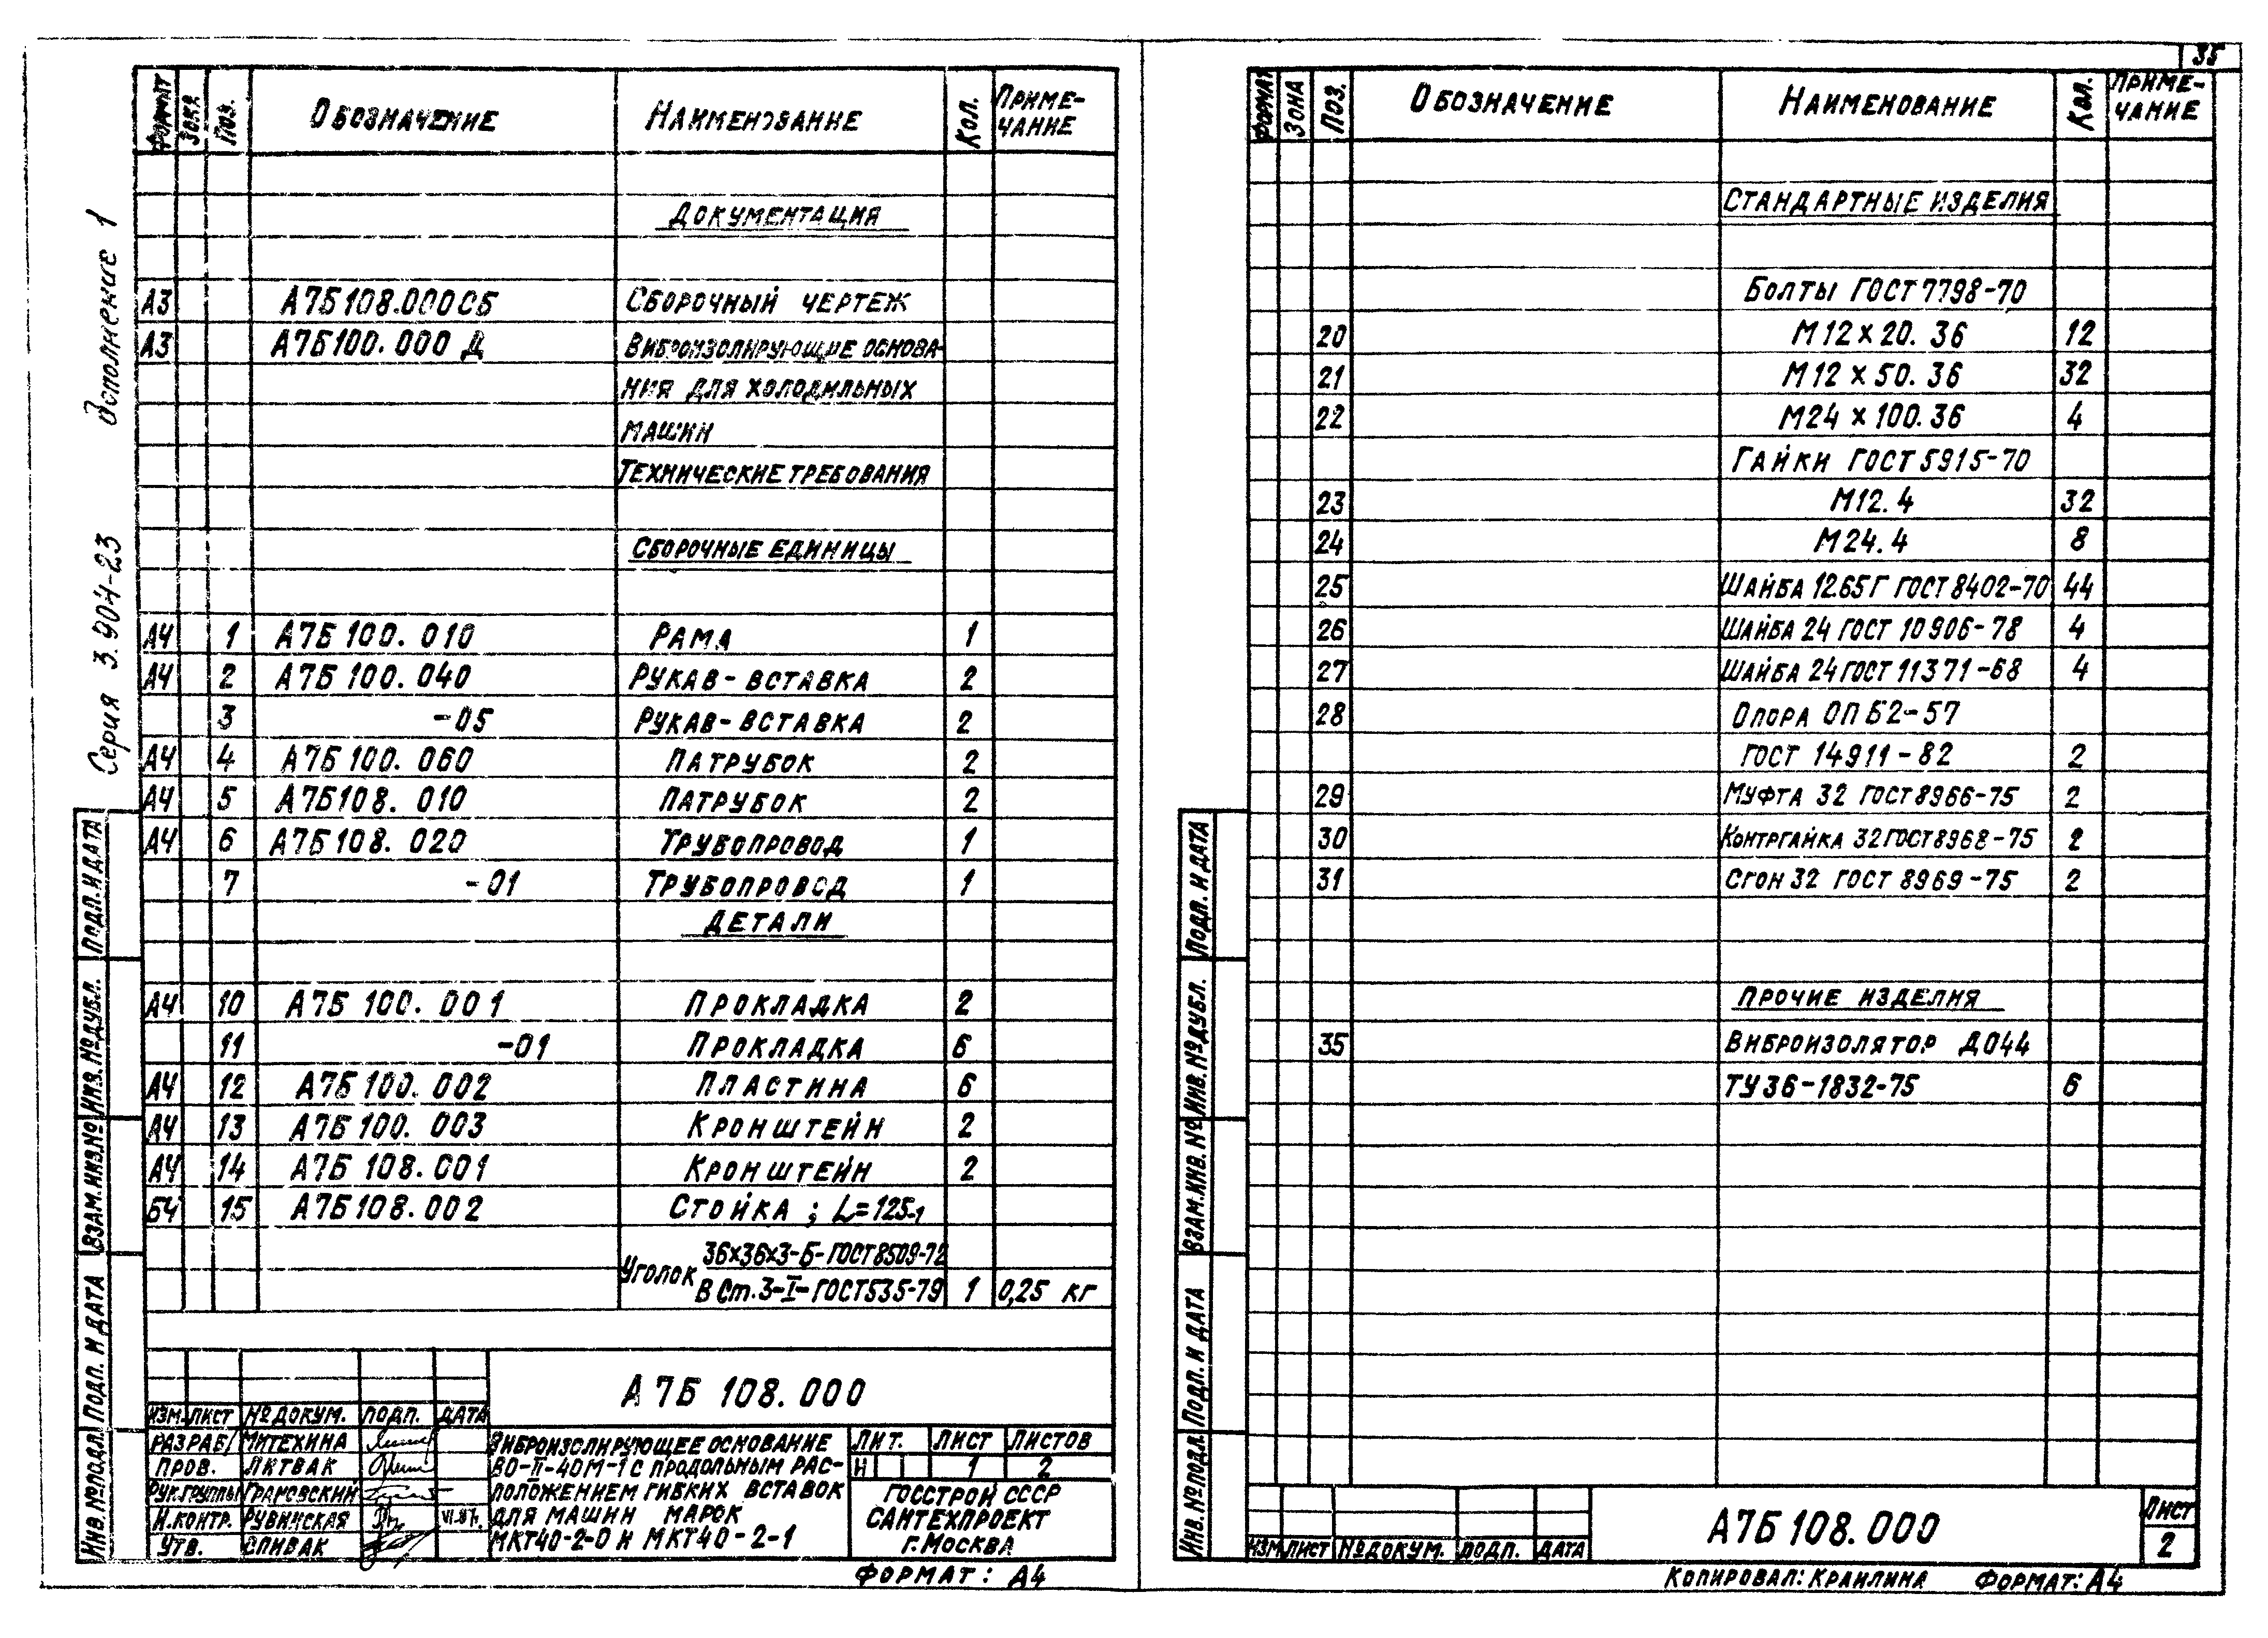 35
Дополнение 1
Серия 3.904-23
Формат Зона Поз. Обозначение Наименование Кол. Примечание
Документация
А3 А7Б108.000СБ Сборочный чертеж
А3 А7Б100.000 Д Виброизолирующие основа-
ния для холодильных
машин
Технические требования
Сборочные единицы
А4 1 А7Б 100.010 Рама 1
А4 2 А7Б 100.040 Рукав-вставка 2
3 -05 Рукав-вставка 2
А4 4 А7Б 100.060 Патрубок 2
А4 5 А7Б108.010 Патрубок 2
А4 6 А7Б108.020 Трубопровод 1
7 -01 Трубопровод 1
Детали
А4 10 А7Б 100.001 Прокладка 2
11 -01 Прокладка 6
А4 12 А7Б 100.002 Пластина 6
А4 13 А7Б 100.003 Кронштейн 2
А4 14 А7Б 108.001 Кронштейн 2
БЧ 15 А7Б108.002 Стойка ; L=125-1
Уголок 36х36х3-Б-ГОСТ8509-72
В Ст.3-I-ГОСТ535-79 1 0,25 кг
Подп. и дата
Инв. № дубл.
Взам. инв. №
Подп. и дата
Инв. № подл.
А7Б 108.000
Изм. Лист № докум. Подп. Дата
Разраб. Митехина
Пров. Литвак
Рук.группы Грановский
Н.контр. Рувинская VI.87г.
Утв. Спивак
Виброизолирующее основание
ВО-II-40М-1 с продольным рас-
положением гибких вставок
для машин марок
МКТ40-2-0 и МКТ40-2-1
Лит. Лист Листов
И 1 2
Госстрой СССР
Сантехпроект
г. Москва
Формат: А4
Формат Зона Поз. Обозначение Наименование Кол. Примечание
Стандартные изделия
Болты ГОСТ 7798-70
20 М12 х 20.36 12
21 М12 х 50.36 32
22 М24 х 100.36 4
Гайки ГОСТ 5915-70
23 М12.4 32
24 М24.4 8
25 Шайба 12.65Г ГОСТ 8402-70 44
26 Шайба 24 ГОСТ 10906-78 4
27 Шайба 24 ГОСТ 11371-68 4
28 Опора ОП Б2-57
ГОСТ 14911-82 2
29 Муфта 32 ГОСТ 8966-75 2
30 Контргайка 32 ГОСТ 8968-75 2
31 Сгон 32 ГОСТ 8969-75 2
Прочие изделия
35 Виброизолятор ДО44
ТУ 36-1832-75 6
Подп. и дата
Инв. № дубл.
Взам. инв. №
Подп. и дата
Инв. № подл.
Изм Лист № докум. Подп. Дата
А7Б108.000
Лист
2
Копировал: Краилина Формат: А4